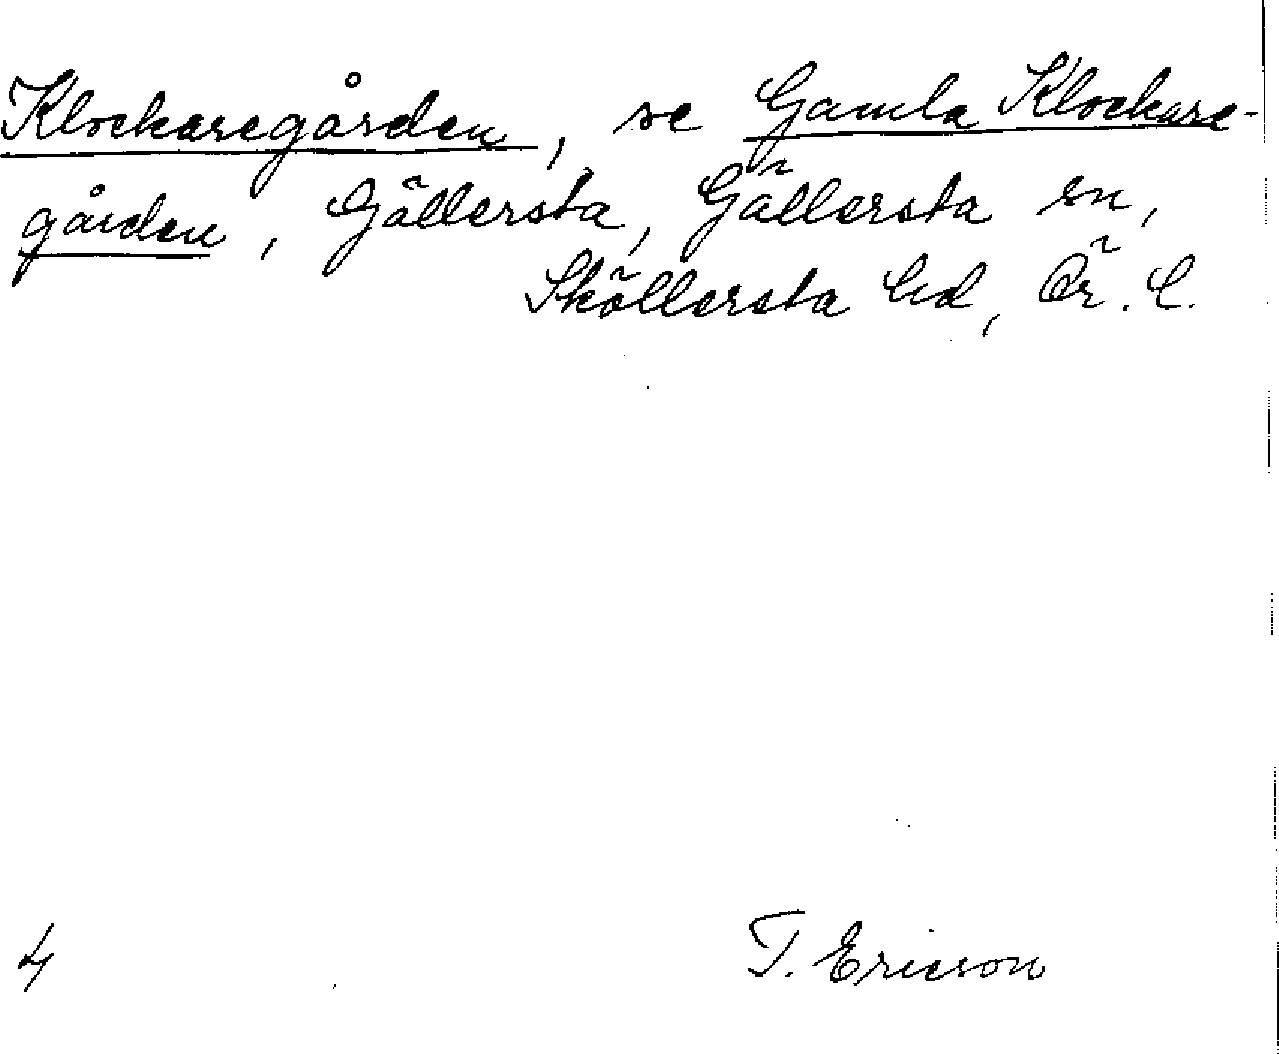 Klockaregården, se Gamla Klockare-
gården, Gällersta, Gällersta sn,
Sköllersta hd, Ör. l.
4
T. Ericson